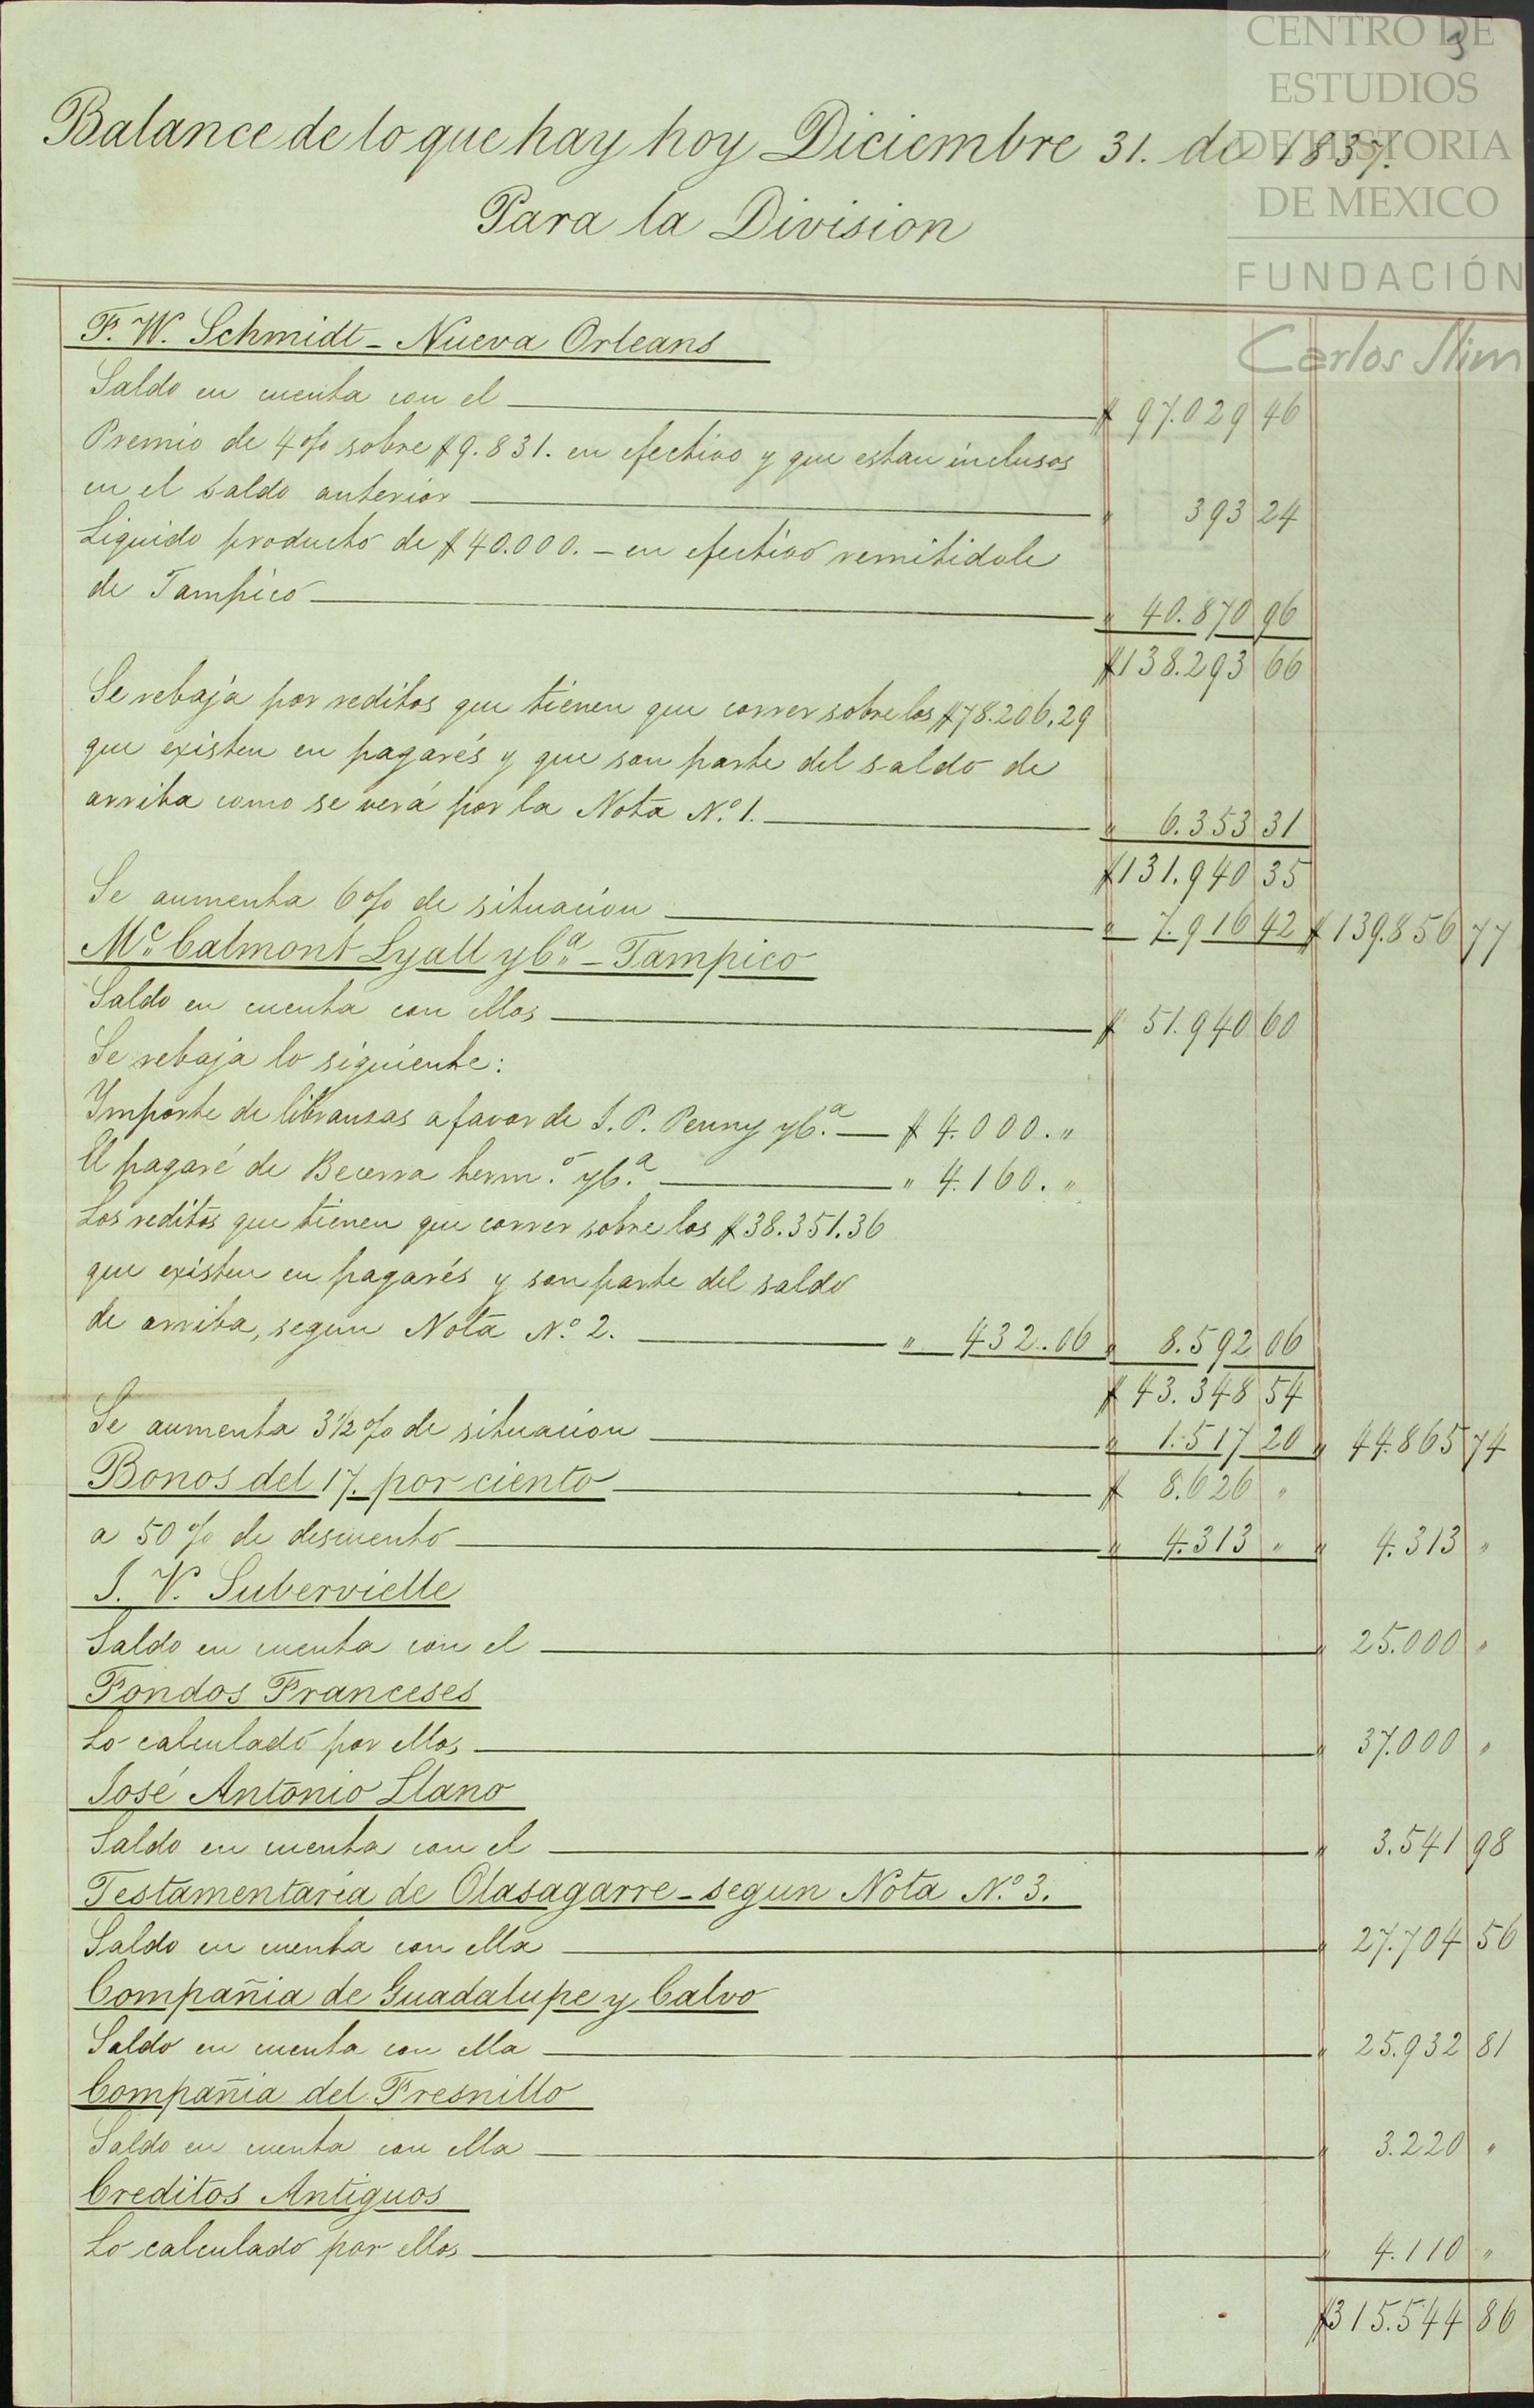 3
CENTRO DE
ESTUDIOS
DE HISTORIA
DE MEXICO
FUNDACIÓN
Carlos Slim
Balance de lo que hay hoy Diciembre 31. de 1837.
Para la Division
F. W. Schmidt - Nueva Orleans
Saldo en cuenta con el $ 97.029 46
Premio de 4% sobre $9.831. en efectivo y que estan inclusos
en el saldo anterior " 393 24
Liquido producto de $40.000. - en efectivo remitidole
de Tampico " 40.870 96
$138.293 66
Se rebaja por reditos que tienen que correr sobre los $78.206,29
que existen en pagarés y que son parte del saldo de
arriba como se verá por la Nota N.º 1. " 6.353 31
$131.940 35
Se aumenta 6% de situacion " 7.916 42 $139.856 77
Mc. Calmont Lyall y C.ª - Tampico
Saldo en cuenta con ellos $ 51.940 60
Se rebaja lo siguiente:
Importe de libransas a favor de J. P. Penny y C.ª $ 4.000. "
El pagaré de Becerra herm.º y C.ª " 4.160. "
Los reditos que tienen que correr sobre los $38.351.36
que existen en pagarés y son parte del saldo
de arriba, segun Nota N.º 2. " 432.06 " 8.592 06
$ 43.348 54
Se aumenta 3½% de situacion " 1.517 20 " 44.865 74
Bonos del 17. por ciento $ 8.626 "
a 50% de descuento " 4.313 " " 4.313 "
J. V. Subervielle
Saldo en cuenta con el " 25.000 "
Fondos Franceses
Lo calculado por ellos " 37.000 "
José Antonio Llano
Saldo en cuenta con el " 3.541 98
Testamentaria de Olasagarre - segun Nota N.º 3.
Saldo en cuenta con ella " 27.704 56
Compañia de Guadalupe y Calvo
Saldo en cuenta con ella " 25.932 81
Compañia del Fresnillo
Saldo en cuenta con ella " 3.220 "
Creditos Antiguos
Lo calculado por ellos " 4.110 "
$315.544 86